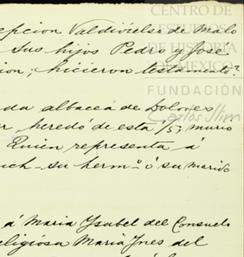 epcion Valdivielso de Malo
sus hijos Pedro y José
ion, hicieron testamento?
da albacea de Dolores
r heredó de esta 1/5; murio
Quien representa á
uch su herm° ó su marido
á Maria Ysabel del Consuelo
eligiosa Maria Ynes del
CENTRO DE
DE HISTORIA
DE MÉXICO
FUNDACIÓN
Carlos Slim